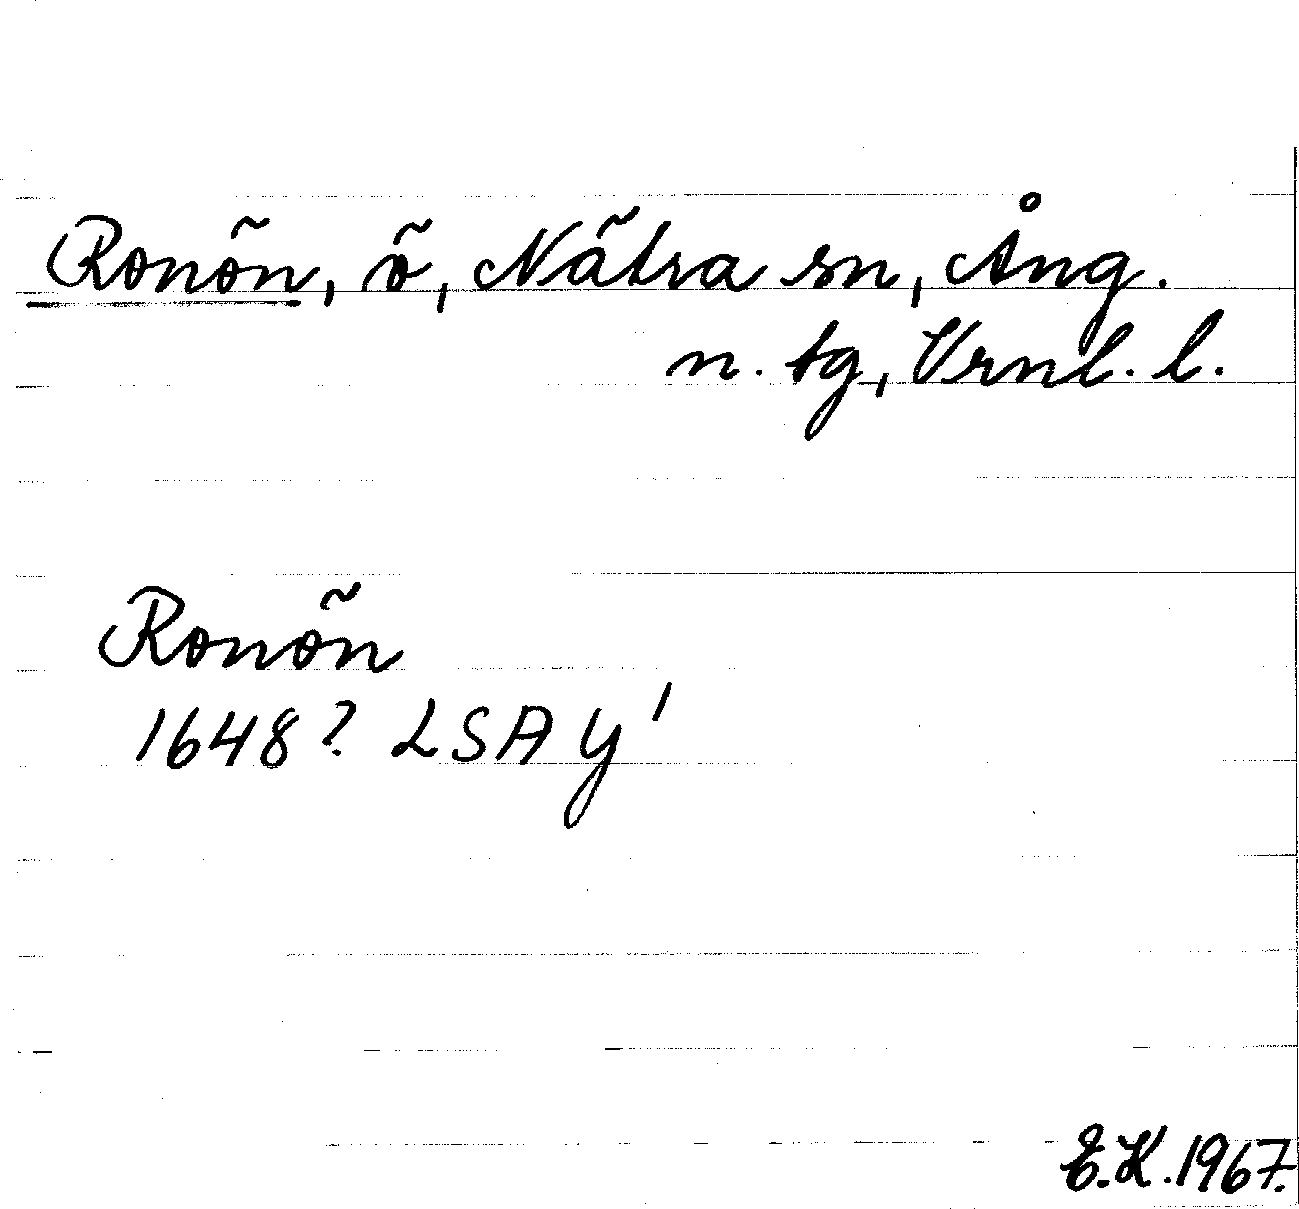 Ronön, ö, Nätra sn, Ång.
n. tg, Vrnl. l.
Ronön
1648? LSA Y'
E.K. 1967.